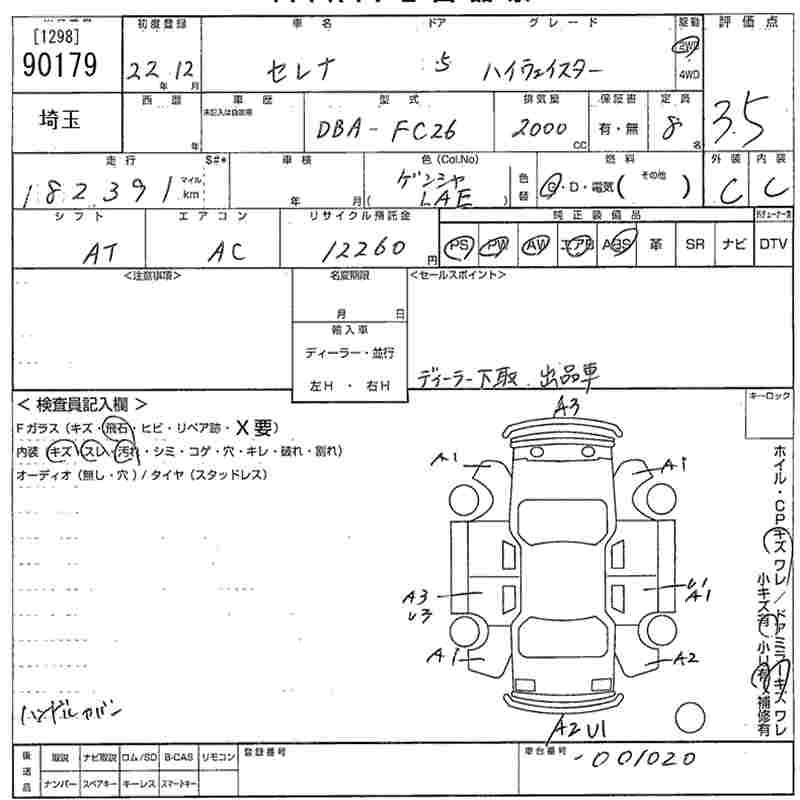 [1298]
90179
初度登録 22年12月
車名 セレナ
ドア 5
グレード ハイウェイスター
駆動 2WD 4WD
評価点 3.5
埼玉
西暦 年
車歴
未記入は自家用
型式 DBA-FC26
排気量 2000 CC
保証書 有・無
定員 8名
走行 182391 マイル km
S#*
車検 年 月
色(Col.No) ゲンミャ ( LAE )
色替
燃料 G・D・電気( その他 )
外装 C
内装 C
シフト AT
エアコン AC
リサイクル預託金 12260円
純正装備品
PS PW AW エアB ABS 革 SR ナビ
DTV
<注意事項>
名変期限
月 日
輸入車
ディーラー・並行
左H ・ 右H
<セールスポイント>
ディーラー下取 出品車
< 検査員記入欄 >
Fガラス(キズ・飛石・ヒビ・リペア跡・X要)
内装(キズ・スレ・汚れ・シミ・コゲ・穴・キレ・破れ・割れ)
オーディオ(無し・穴)/タイヤ(スタッドレス)
キーロック
A3
A1 A1
A3 U3
U1 A1
A1 A2
A2 U1
ホイル・CPキズワレ/ドアミラーキズワレ
小キズ有 小U有 補修有
ハンドルカバン
後送品
取説 ナビ取説 ロム/SD B-CAS リモコン
ナンバー スペアキー キーレス スマートキー
登録番号
車台番号 -001020